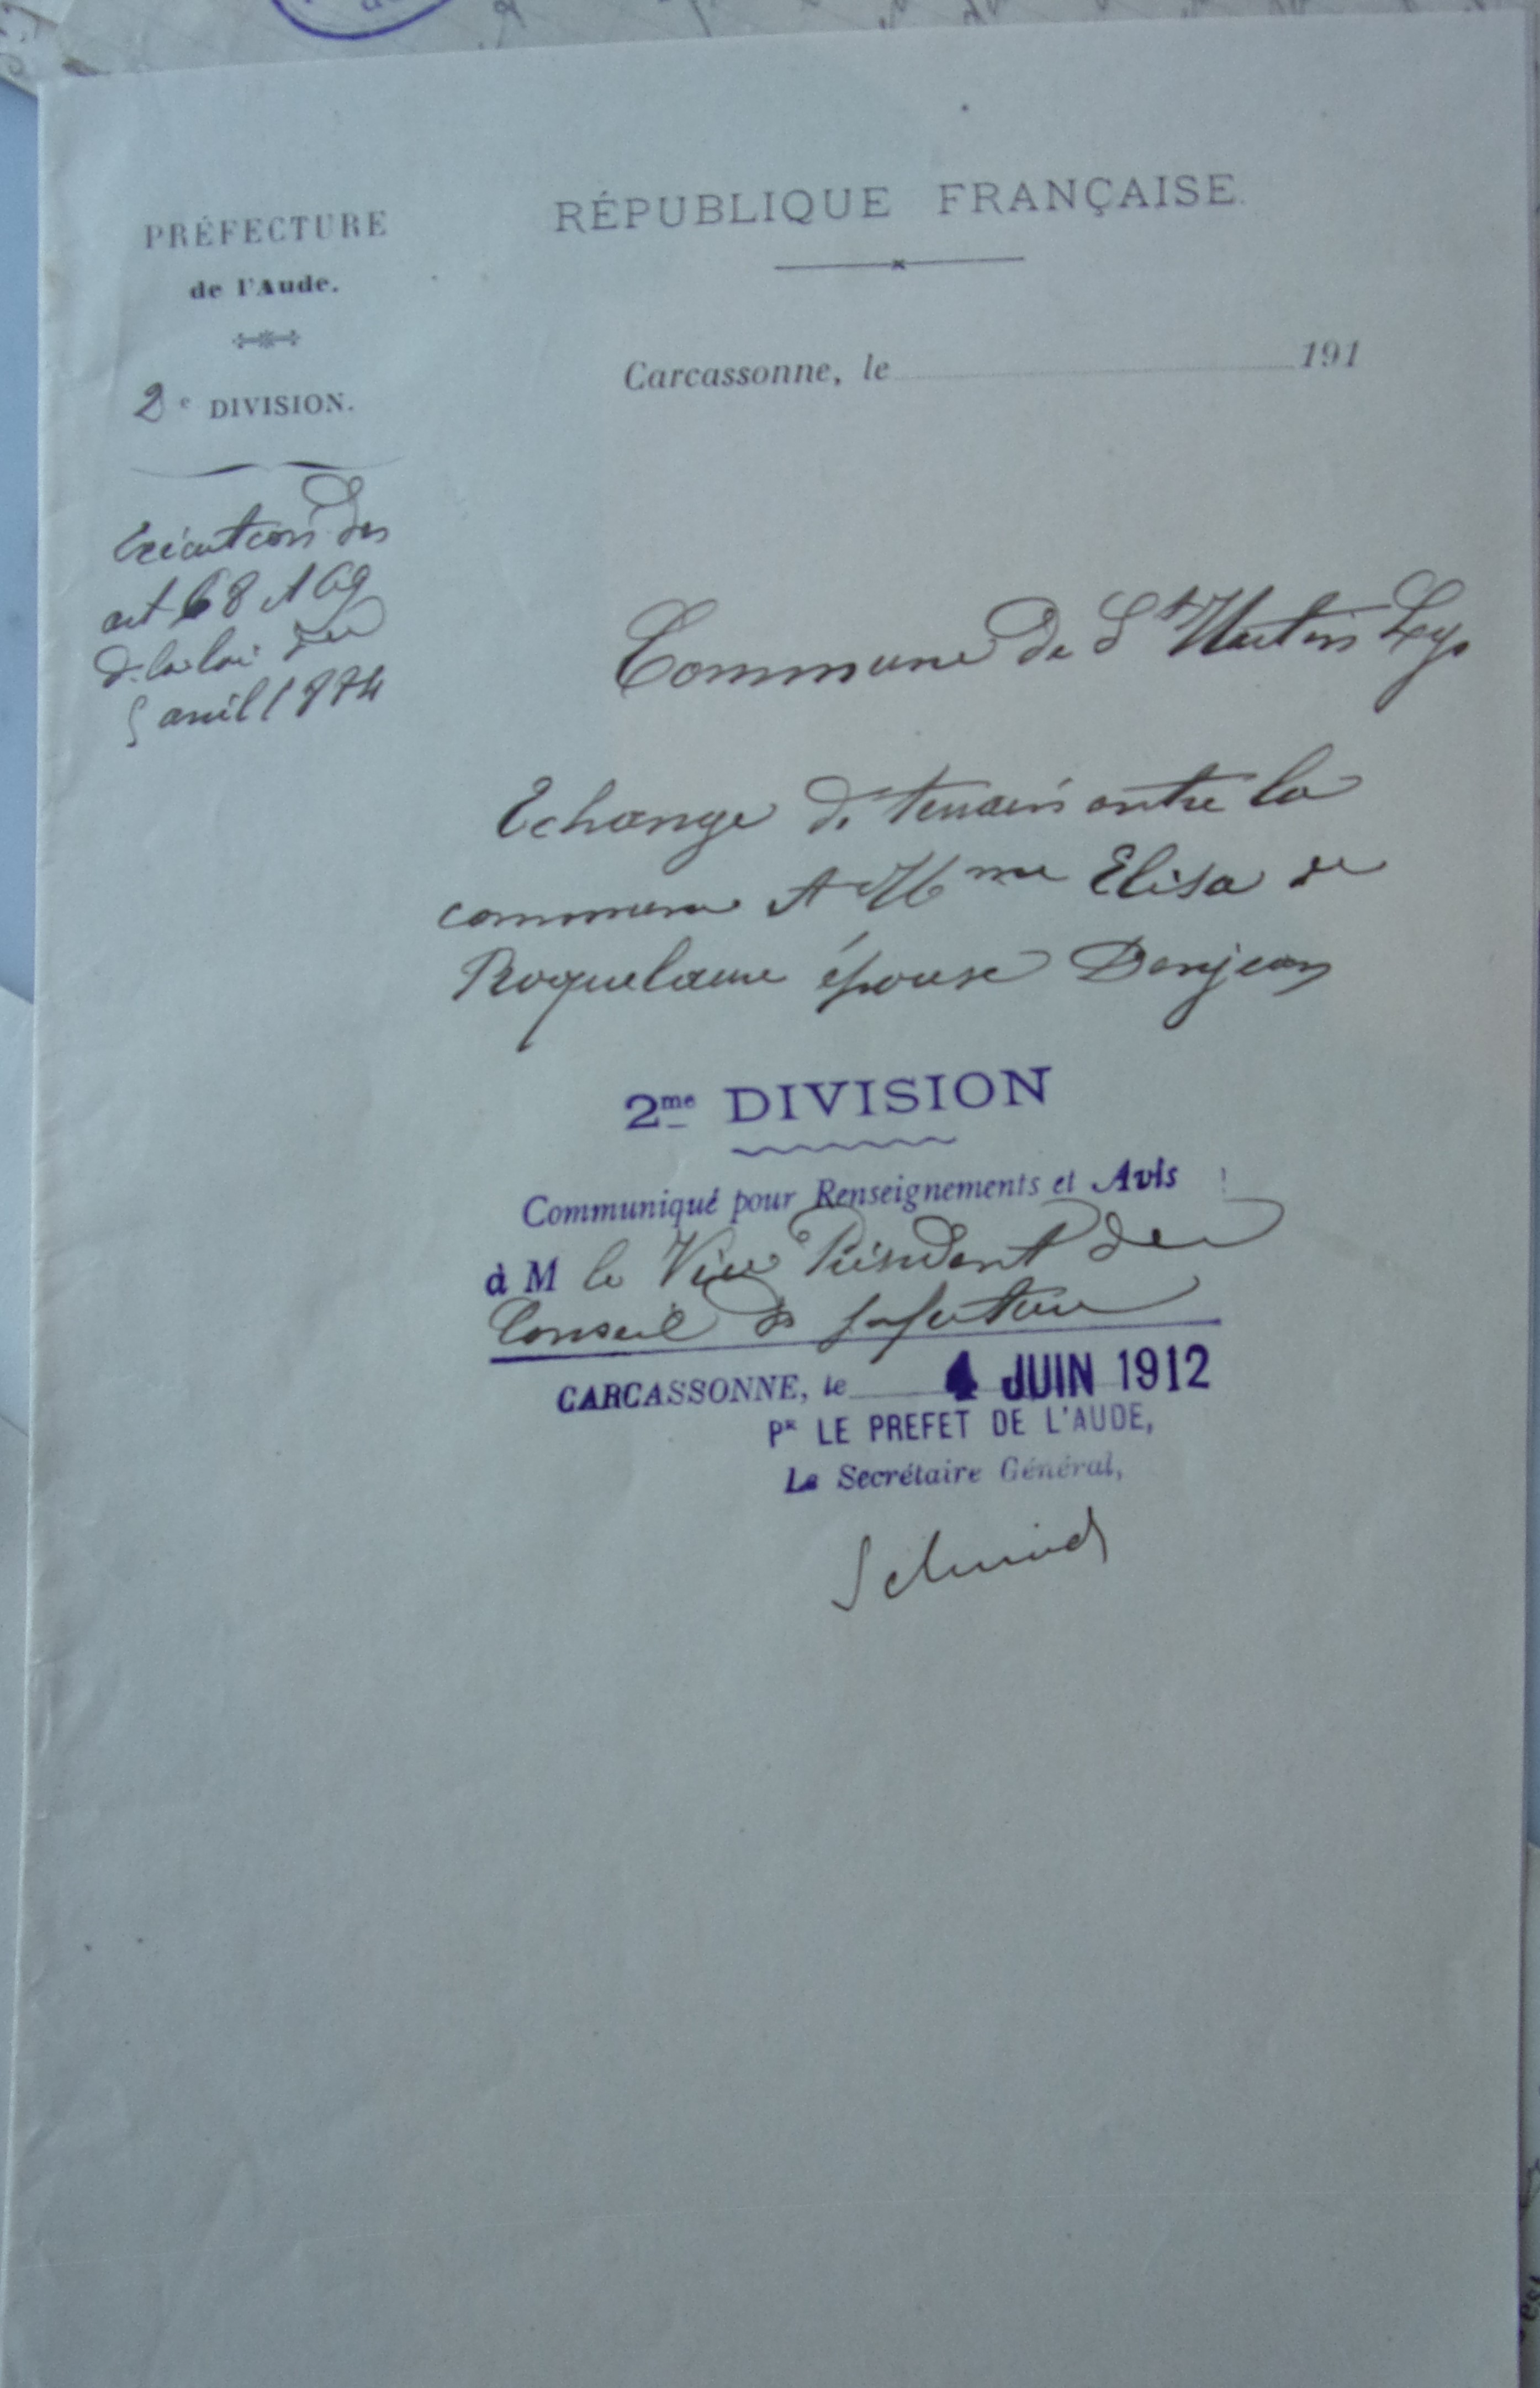 PRÉFECTURE
de l'Aude.
2e DIVISION.
Exécution des
art 68 et 69
de la loi du
5 avril 1884
RÉPUBLIQUE FRANÇAISE.
Carcassonne, le 191
Commune de St Martin Lys
Echange de terrain entre la
commune et Mme Elisa de
Roquelaure épouse Donjean
2me DIVISION
Communiqué pour Renseignements et Avis
à M le Vice Président du
Conseil de préfecture
CARCASSONNE, le 4 JUIN 1912
Pr LE PREFET DE L'AUDE,
Le Secrétaire Général,